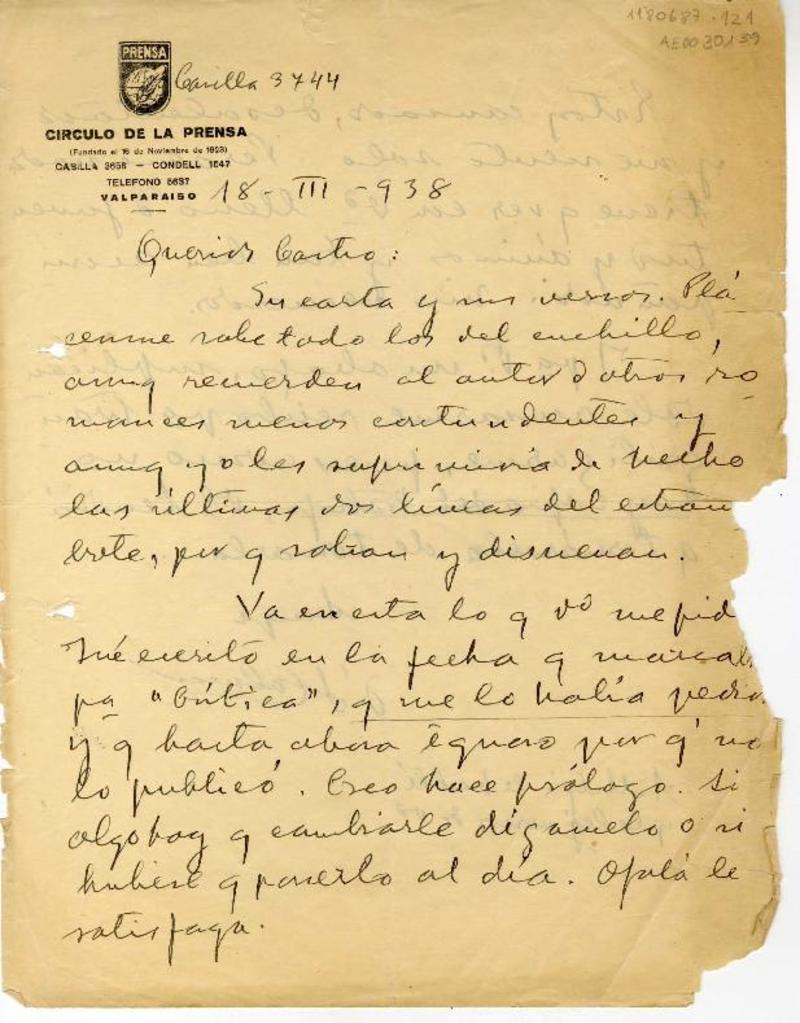 1180687-121
AE0030139
PRENSA
Casilla 3744
CIRCULO DE LA PRENSA
(Fundado el 16 de Noviembre de 1923)
CASILLA 3658 — CONDELL 1547
TELEFONO 5637
VALPARAISO
18-III-938
Querido Castro:
Su carta y mis versos. Plá
cenme sobre todo los del cuchillo,
aunq recuerden al autor d otros ro
mances menos contundentes y
aunq yo les suprimiria de hecho
las últimas dos líneas del estram
bote, por q sobran y disuenan.
Va en esta lo q Vd me pid
Fué escrito en la fecha q marca
pa "Crítica", q me lo había pedi
y q hasta ahora ignoro por q' no
lo publicó. Creo hace prólogo. Si
algo hay q cambiarle dígamelo o si
hubiese q ponerlo al día. Ojalá le
satisfaga.